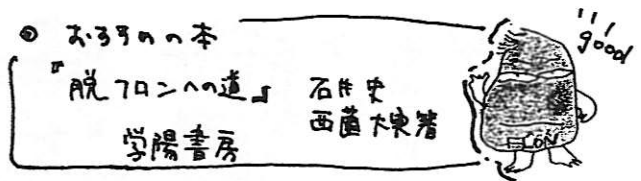 ◎ おすすめの本
『脱フロンへの道』 石井史
西薗大実著
学陽書房
good
FLON